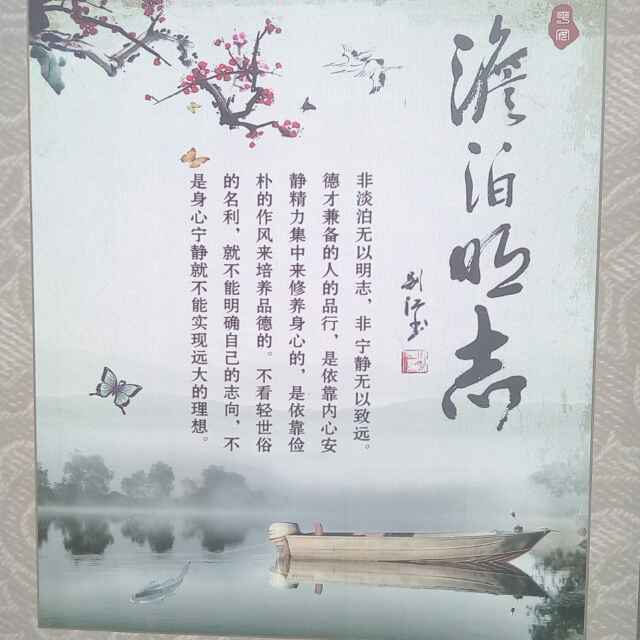 澹泊明志
非淡泊无以明志，非宁静无以致远。
德才兼备的人的品行，是依靠内心安
静精力集中来修养身心的，是依靠俭
朴的作风来培养品德的。不看轻世俗
的名利，就不能明确自己的志向，不
是身心宁静就不能实现远大的理想。